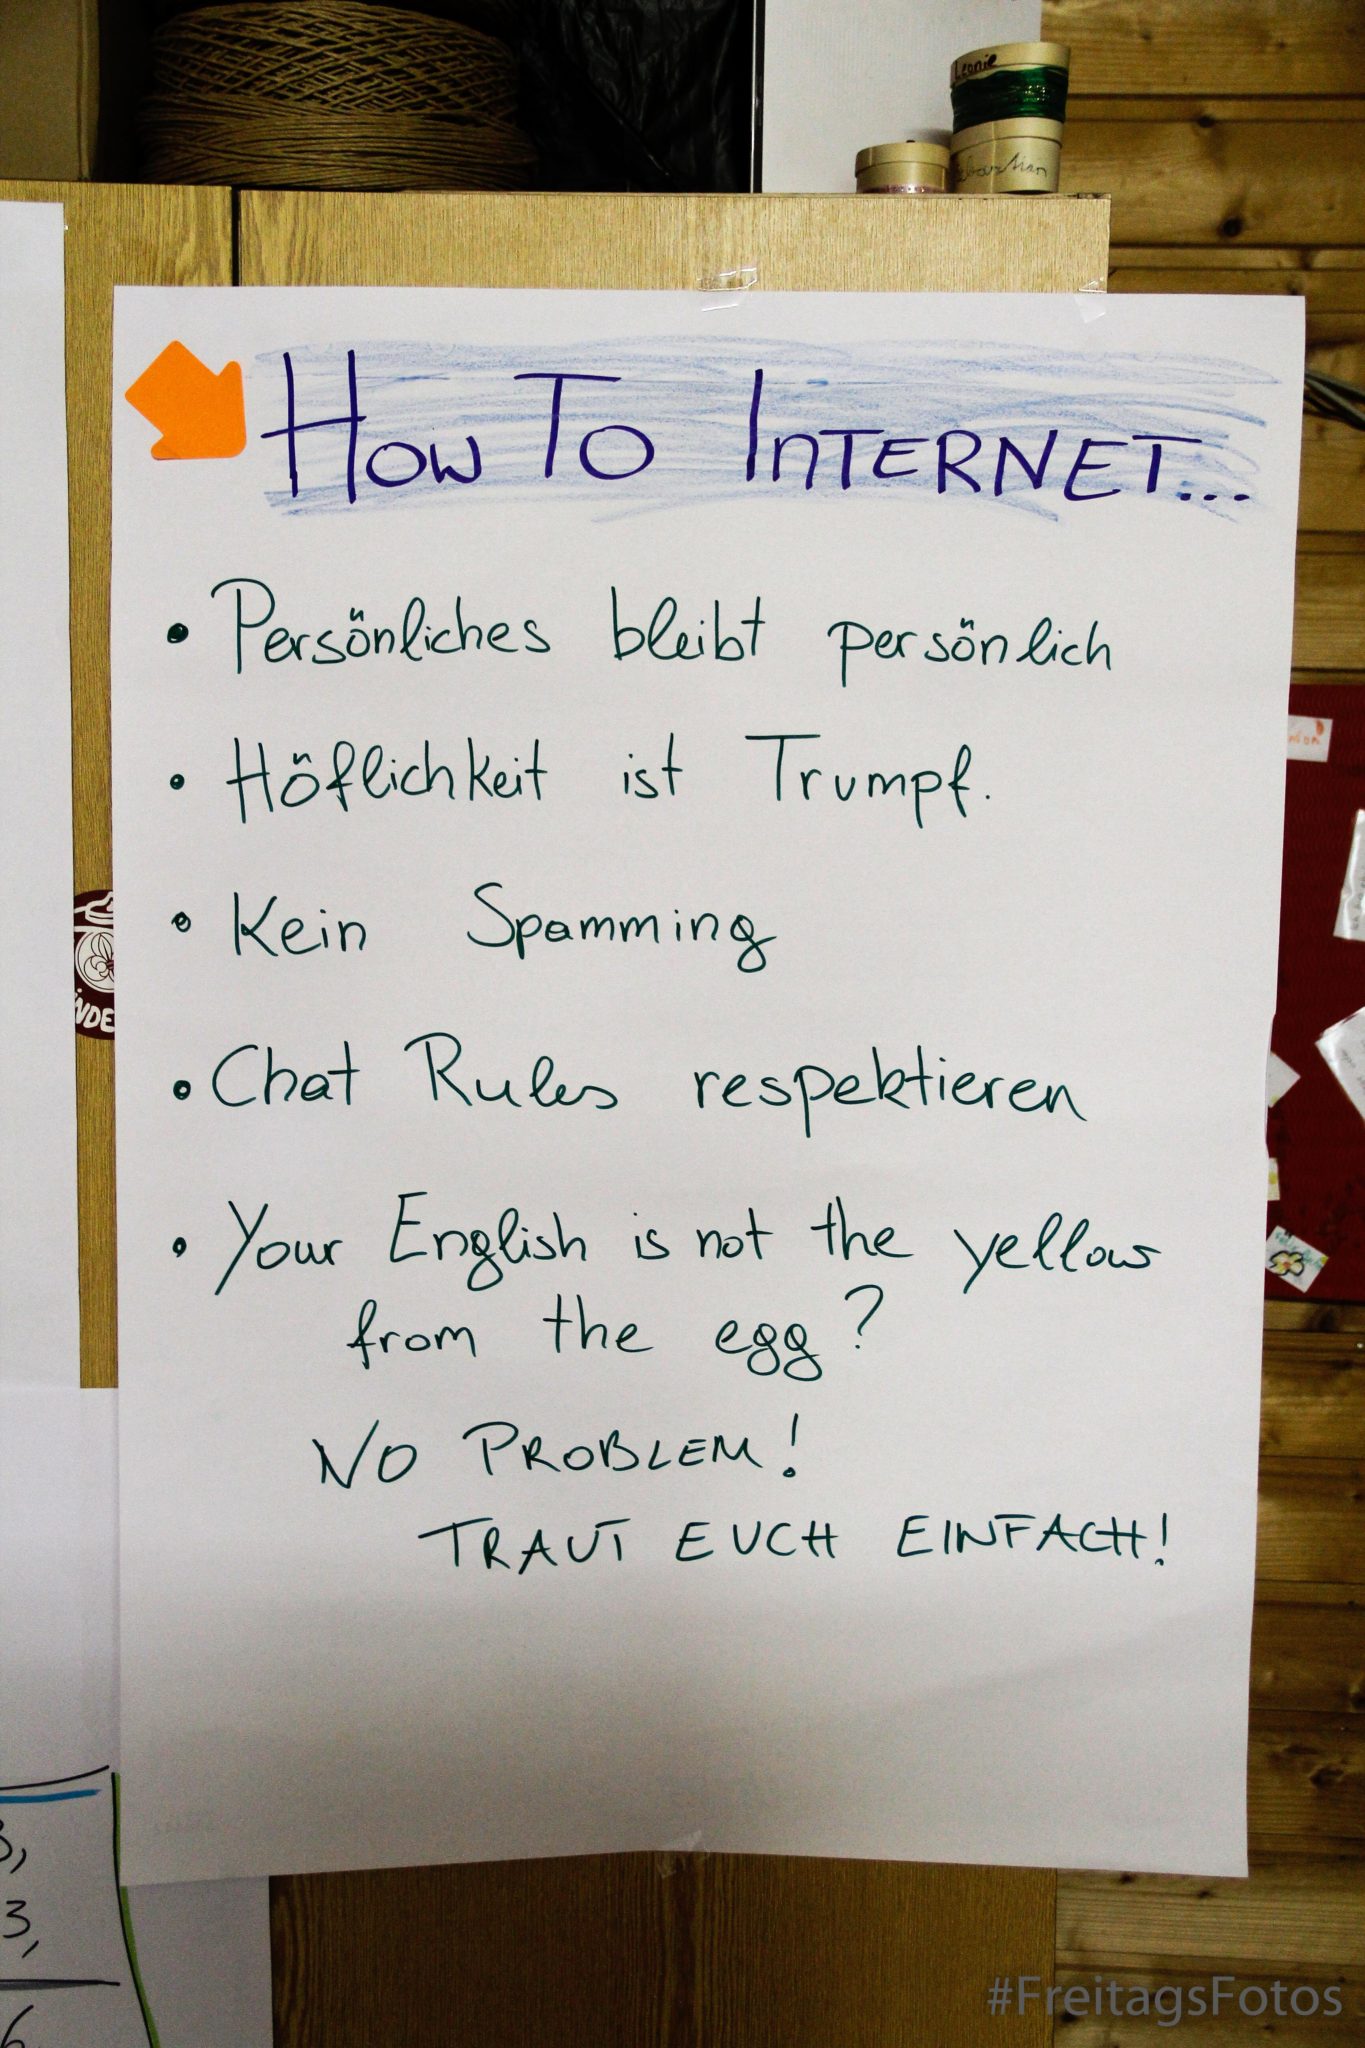 Leonie
HOW TO INTERNET...
• Persönliches bleibt persönlich
• Höflichkeit ist Trumpf.
• Kein Spamming
• Chat Rules respektieren
• Your English is not the yellow
from the egg?
NO PROBLEM!
TRAUT EUCH EINFACH!
3,
3,
6
#FreitagsFotos